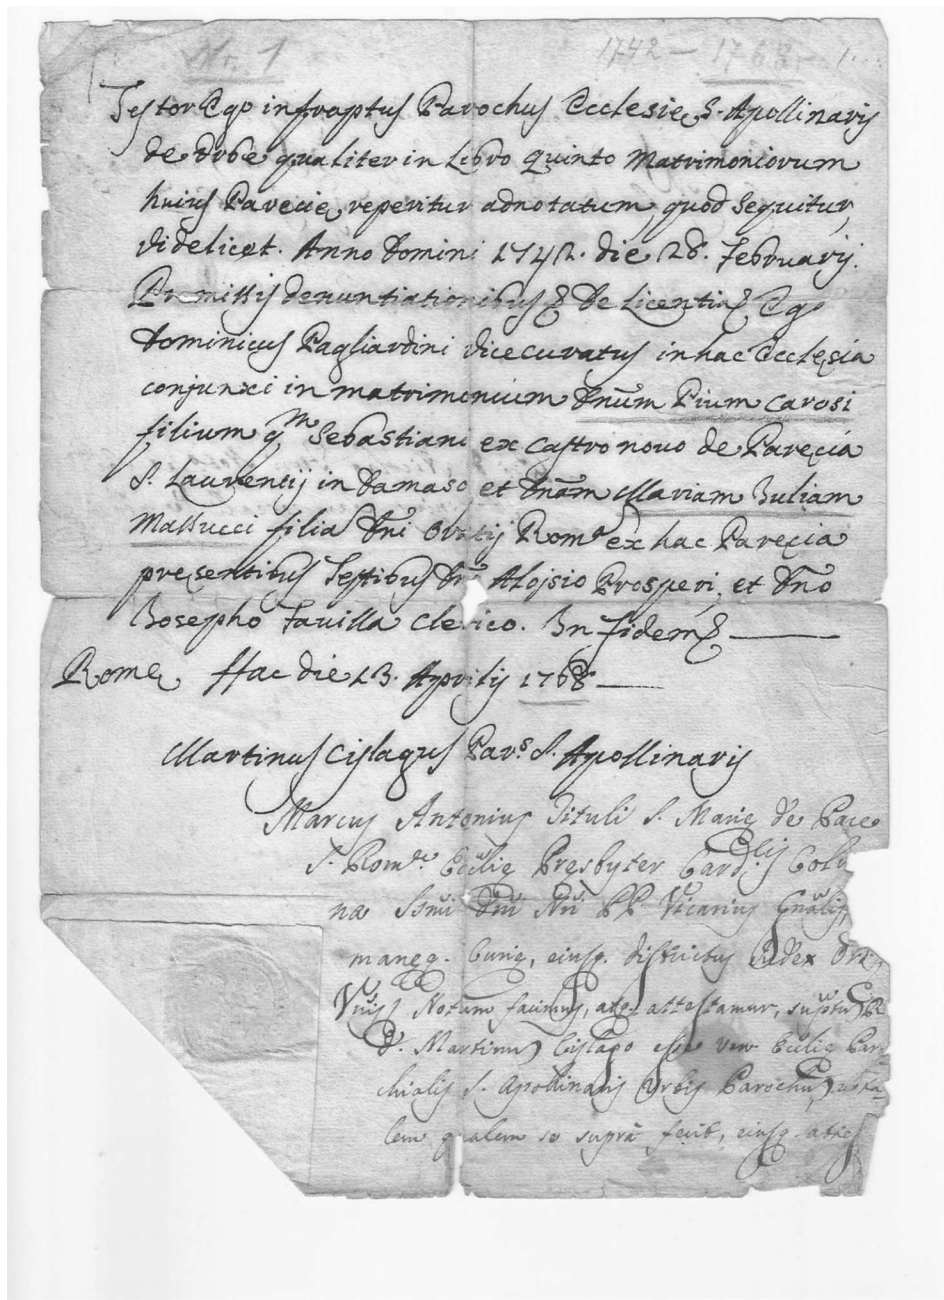 Nr. 1 1742 — 1768
Testor Ego infraptus Parochus Ecclesie, S. Apollinaris
de Urbe qualiter in Libro quinto Matrimoniorum
huius Parecie, reperitur adnotatum quod sequitur,
videlicet. Anno Domini 1742. die 28. Februarij.
Premissis denuntiationibus & de licentia & Ego
Dominicus Pagliardini Vicecuratus in hac Ecclesia
conjunxi in matrimonium Dnum Pium Carosi
filium qm Sebastiani ex Castro novo de Parecia
S. Laurentij in Damaso et Dnam Mariam Iuliam
Massucci filia Dni Oratij Rom. ex hac Parecia
presentibus Testibus Dno Alojsio Prosperi, et Dno
Iosepho Favilla Clerico. In fidem &
Rome Hac die 13. Aprilis 1768
Martinus Cislagus Par.s S. Apollinaris
Marcus Antonius Tituli S. Marie de Pace
S. Rom.e Ecclie Presbyter Card.lis Colu
na Ssmi Dni Nri PP Vicarius Gnalis,
maneq. Curie, eiusq. districtus Judex Ord
Notum facimus, atq. attestamur, suptum
D. Martinum Cislago esse verum Ecclie Par
chialis S. Apollinaris Urbis Parochum, ac ta
lem qualem se supra fecit, eiusq. attes